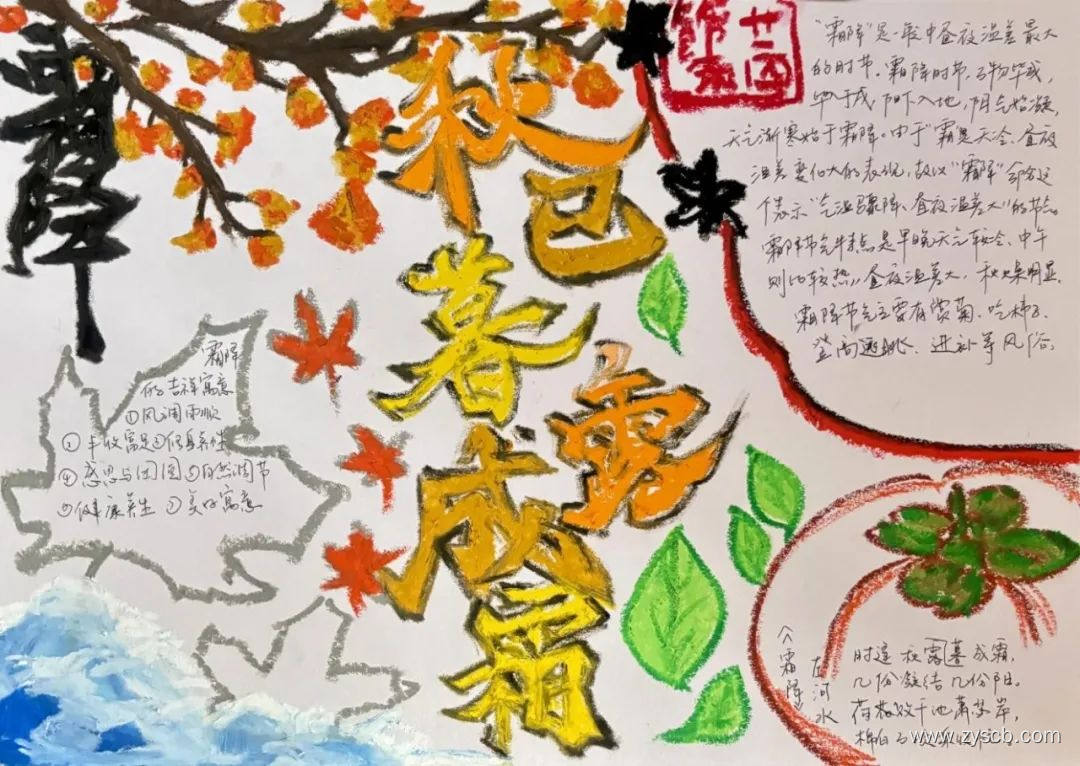 霜降
秋已
暮
露
成
霜
廿四
节气
"霜降"是一年中昼夜温差最大
的时节。霜降时节，万物毕成，
毕入于戌，阳下入地，阴气始凝，
天气渐寒始于霜降。由于"霜"是天冷、昼夜
温差变化大的表现，故以"霜降"命名这
个表示"气温骤降、昼夜温差大"的节气。
霜降节气特点是早晚天气较冷、中午
则比较热，昼夜温差大，秋燥明显。
霜降节气主要有赏菊、吃柿子、
登高远眺、进补等风俗。
霜降
的吉祥寓意
①风调雨顺
丰收富足③修身养性
④感恩与团圆⑤自然调节
⑥健康养生⑦美好寓意
《霜降》
左河水
时逢秋露暮成霜，
几份凝结几份阳。
荷败千池萧
棉白
www.zyscb.com